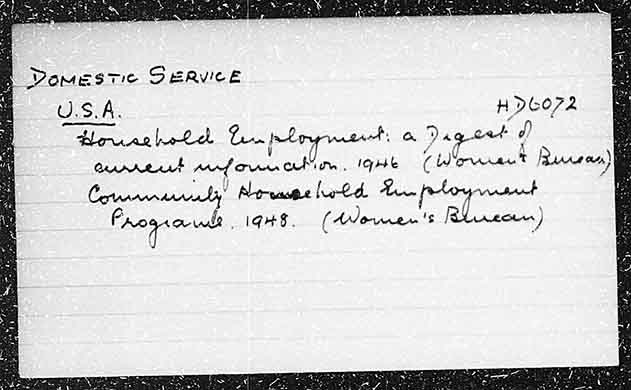 DOMESTIC SERVICE
U.S.A. HD6072
Household Employment: a Digest of
current information. 1946 (Women's Bureau)
Community Household Employment
Programs. 1948. (Women's Bureau)